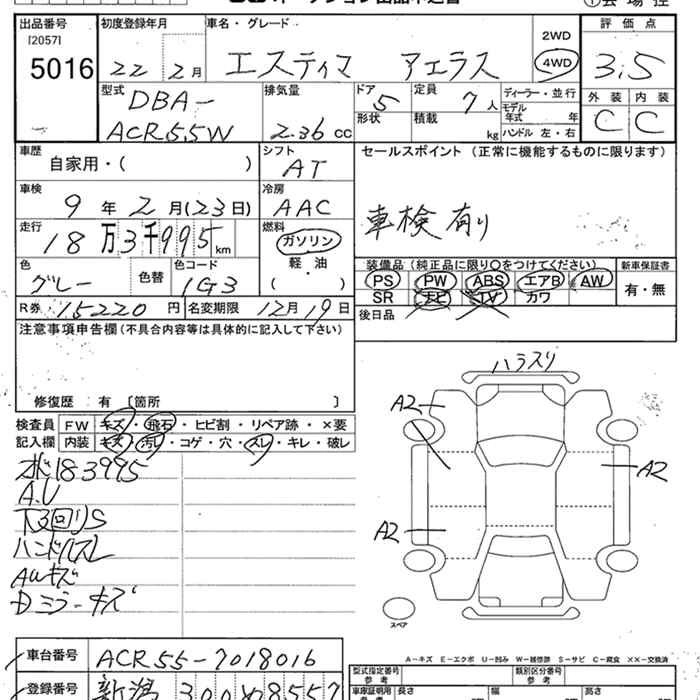 出品番号
[2057]
5016
初度登録年月
22 2月
車名・グレード
エスティマ アエラス
2WD
4WD
評価点
3.5
外装 内装
C C
型式
DBA-
ACR55W
排気量
2.36 cc
ドア
5
形状
定員
7人
積載
kg
ディーラー・並行
モデル
年式 年
ハンドル 左・右
車歴
自家用・( )
シフト
AT
車検
9年2月(23日)
冷房
AAC
走行
18万3千995km
燃料
ガソリン
軽・油
( ・ )
色
グレー
色替
色コード
1G3
R券 15220円
名変期限 12月19日
セールスポイント (正常に機能するものに限ります)
車検有り
装備品(純正品に限り○をつけてください)
PS PW ABS エアB AW
SR ナビ TV カワ
新車保証書
有・無
後日品
注意事項申告欄(不具合内容等は具体的に記入して下さい)
修復歴 有 [箇所 ]
検査員
記入欄
FW キズ・飛石・ヒビ割・リペア跡・×要
内装 キズ・汚れ・コゲ・穴・スレ・キレ・破レ
183995
A.U
下回りS
ハンドルスレ
AWキズ
ミラーキズ
ハラスリ
A2
A2
A2
スペア
車台番号
ACR55-7018016
登録番号
新潟 300
A-キズ E-エクボ U-凹み W-補修跡 S-サビ C-腐食 XX-交換済
型式指定番号
参考
類別区分番号
参考
車庫証明用
参考
長さ
幅
高さ